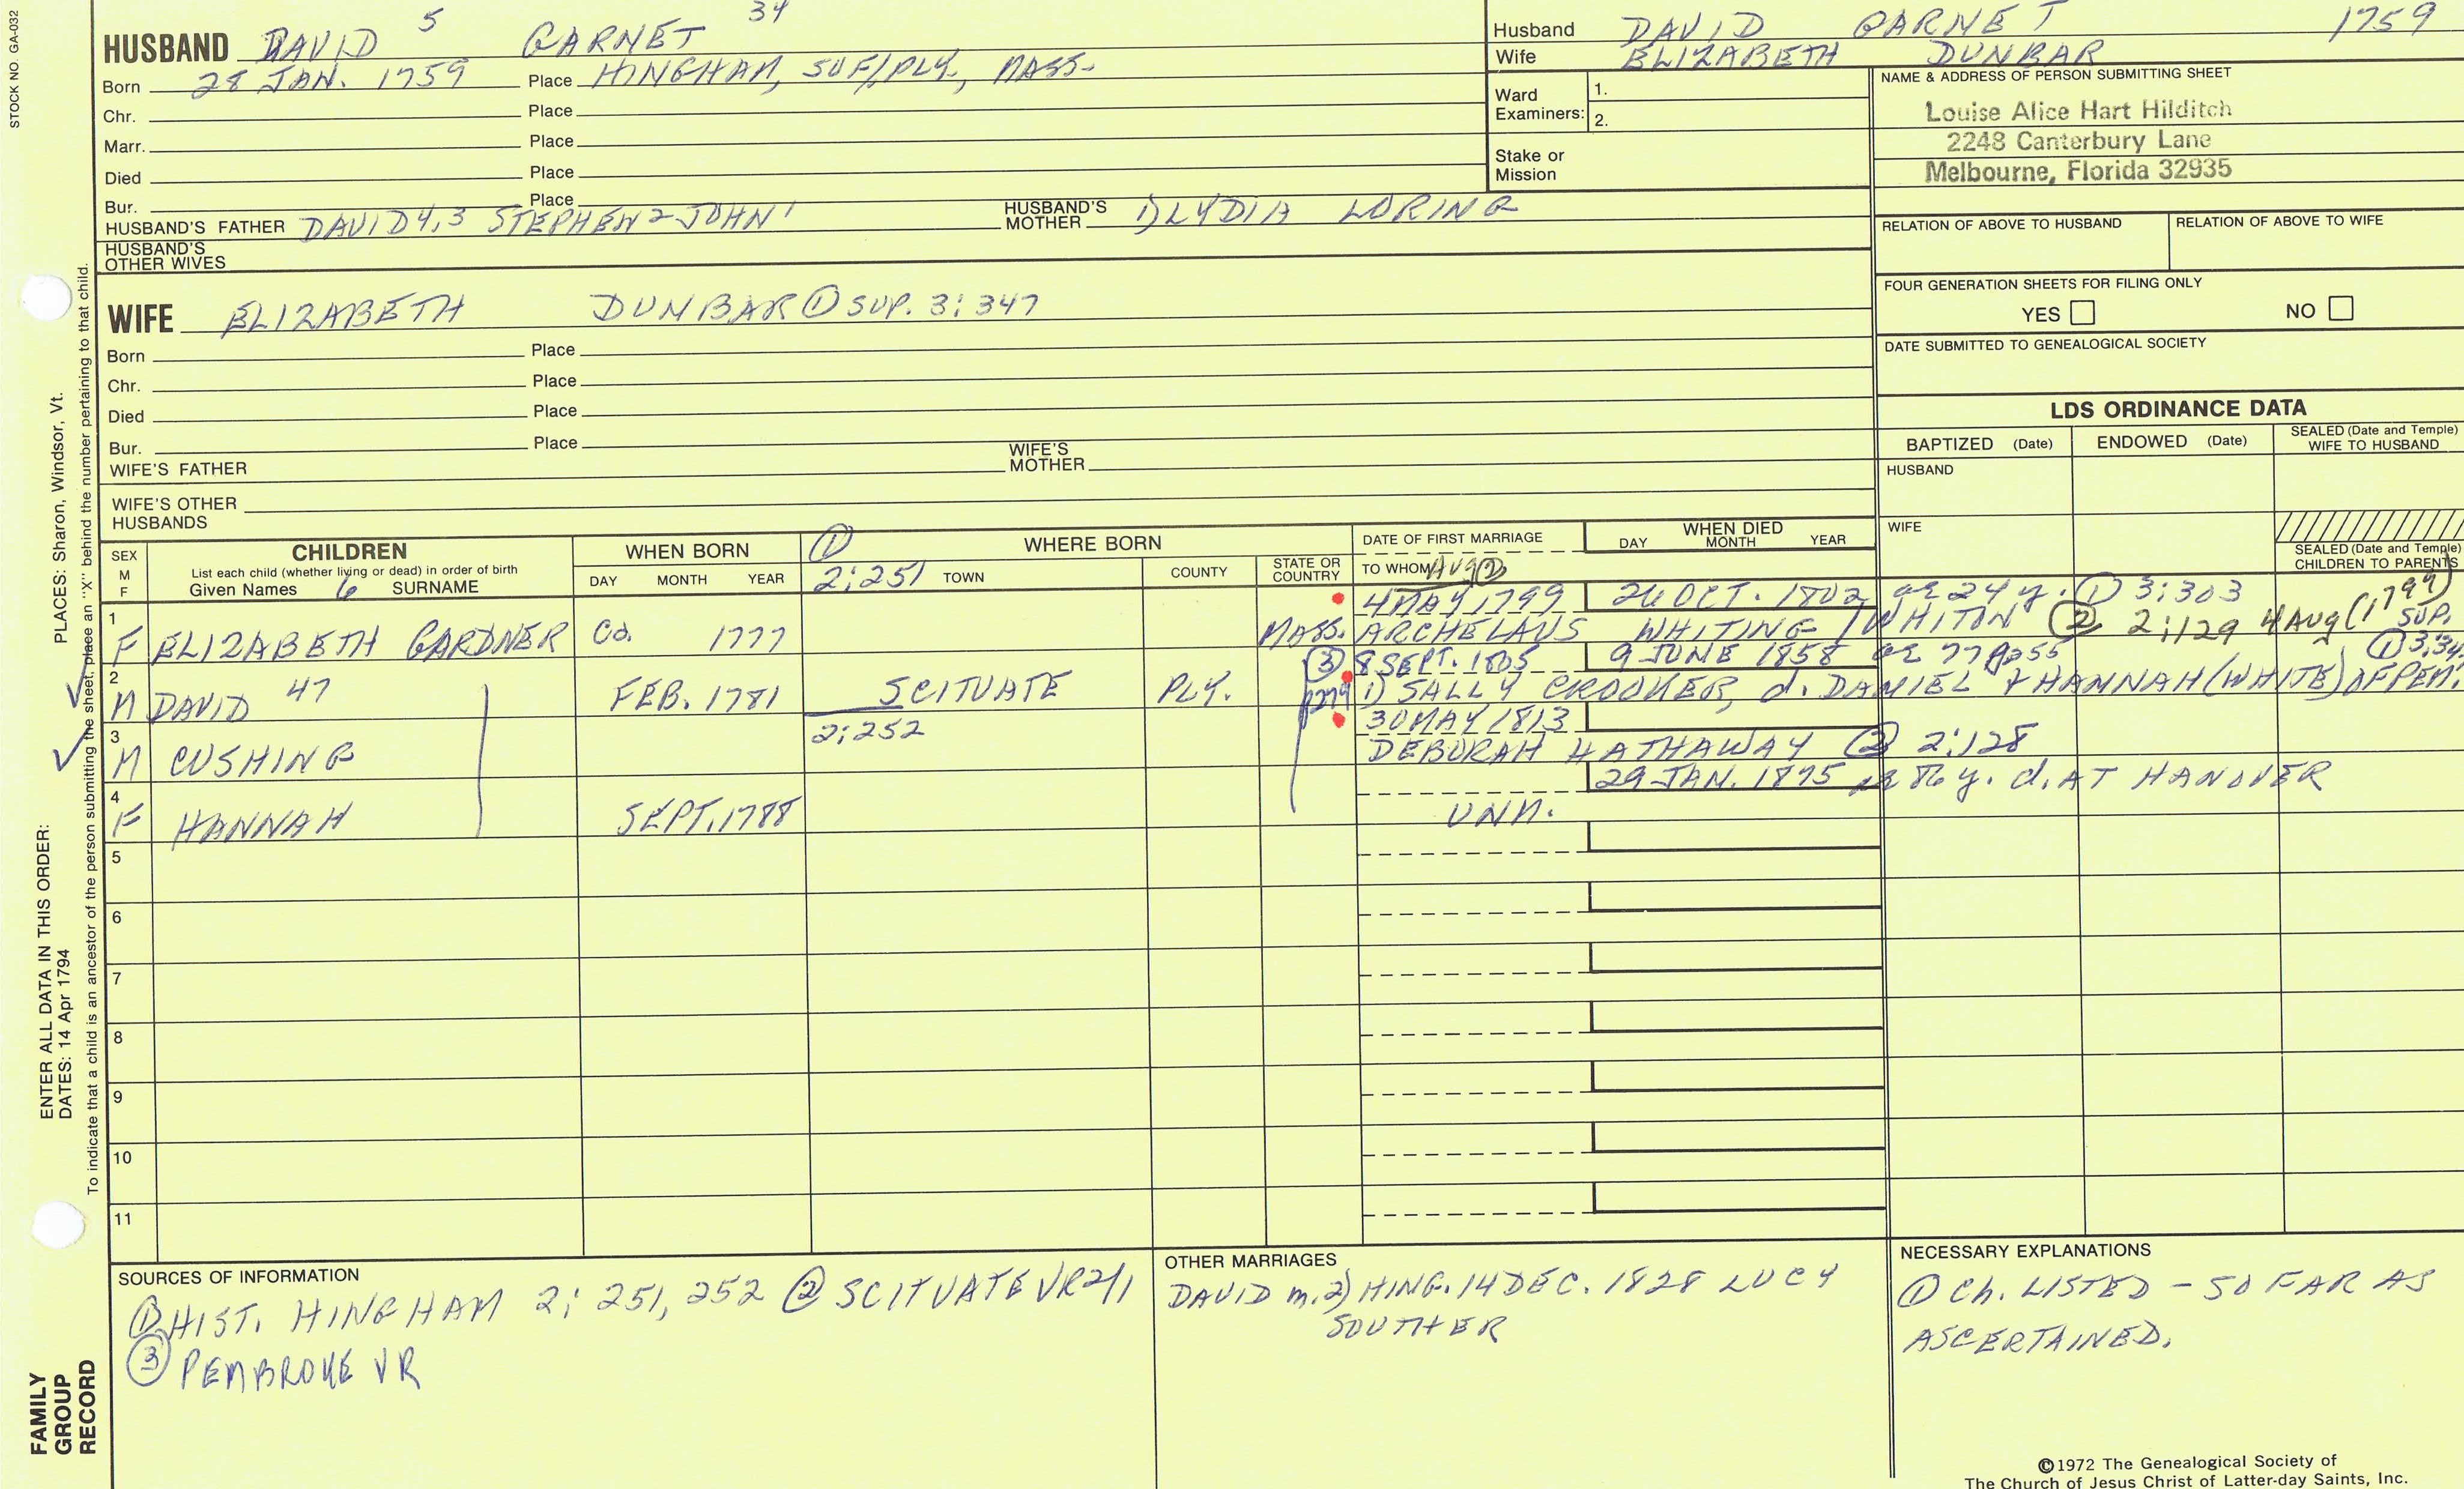 STOCK NO. GA-032
HUSBAND DAVID 5 GARNET 34
Born 28 JAN. 1759 Place HINGHAM, SUF/PLY, MASS.
Chr. Place
Marr. Place
Died Place
Bur. Place
HUSBAND'S FATHER DAVID 4,3 STEPHEN 2 JOHN 1 HUSBAND'S MOTHER 1) LYDIA LORING
HUSBAND'S OTHER WIVES
Husband DAVID GARNET 1759
Wife ELIZABETH DUNBAR
Ward Examiners: 1.
2.
Stake or Mission
NAME & ADDRESS OF PERSON SUBMITTING SHEET
Louise Alice Hart Hilditch
2248 Canterbury Lane
Melbourne, Florida 32935
RELATION OF ABOVE TO HUSBAND RELATION OF ABOVE TO WIFE
FOUR GENERATION SHEETS FOR FILING ONLY
YES NO
DATE SUBMITTED TO GENEALOGICAL SOCIETY
WIFE ELIZABETH DUNBAR ① SUP. 3:347
Born Place
Chr. Place
Died Place
Bur. Place
WIFE'S FATHER WIFE'S MOTHER
WIFE'S OTHER HUSBANDS
LDS ORDINANCE DATA
BAPTIZED (Date) ENDOWED (Date) SEALED (Date and Temple) WIFE TO HUSBAND
HUSBAND
WIFE
SEALED (Date and Temple) CHILDREN TO PARENTS
SEX M F
CHILDREN
List each child (whether living or dead) in order of birth
Given Names 6 SURNAME
WHEN BORN
DAY MONTH YEAR
① 2:251
WHERE BORN
TOWN COUNTY STATE OR COUNTRY
DATE OF FIRST MARRIAGE
TO WHOM AUG ②
WHEN DIED
DAY MONTH YEAR
4 MAY 1799 26 OCT. 1802 ae 24 y. ① 3:303
1 F ELIZABETH GARDNER Cd. 1777 MASS. ARCHELAUS WHITING / WHITON ② 2:129 4 Aug (1799) SUP.
③ 8 SEPT. 1805 9 JUNE 1858 ae 77
2 M DAVID 47 FEB. 1781 SCITUATE PLY. 1) SALLY CROOKER, d. DANIEL + HANNAH (WHITE) OF PEM.
2:252 30 MAY 1813
3 M CUSHING DEBORAH HATHAWAY ② 2:128
29 JAN. 1875 ae 86 y. d. AT HANOVER
4 F HANNAH SEPT. 1788 UNM.
5
6
7
8
9
10
11
SOURCES OF INFORMATION
① HIST. HINGHAM 2:251, 252 ② SCITUATE VR 2/1
③ PEMBROKE VR
OTHER MARRIAGES
DAVID m. 2) HING. 14 DEC. 1828 LUCY
SOUTHER
NECESSARY EXPLANATIONS
① Ch. LISTED - SO FAR AS
ASCERTAINED.
©1972 The Genealogical Society of
The Church of Jesus Christ of Latter-day Saints, Inc.
ENTER ALL DATA IN THIS ORDER:
DATES: 14 Apr 1794
PLACES: Sharon, Windsor, Vt.
To indicate that a child is an ancestor of the person submitting the sheet, place an "X" behind the number pertaining to that child.
FAMILY
GROUP
RECORD